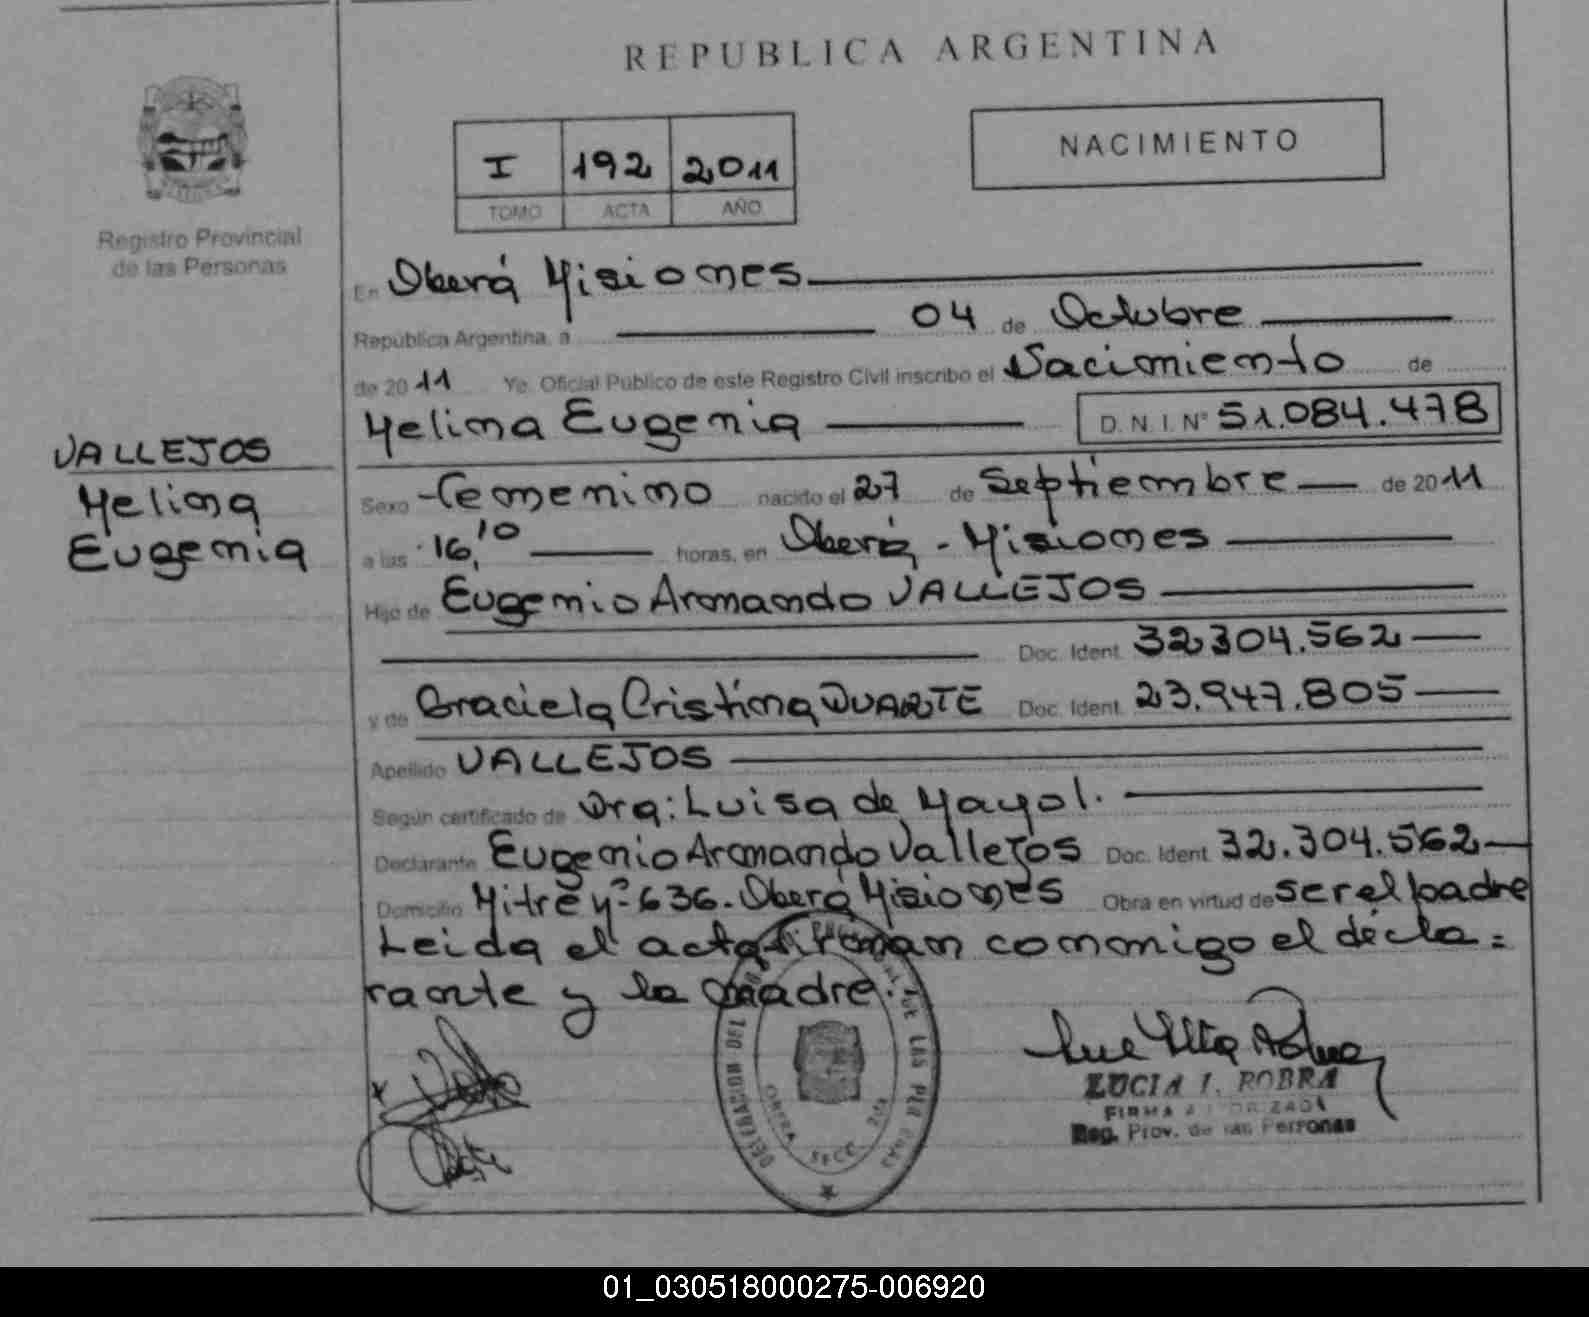 REPUBLICA ARGENTINA
I 192 2011
TOMO ACTA AÑO
NACIMIENTO
Registro Provincial
de las Personas
En Oberá Misiones
República Argentina, a 04 de Octubre
de 2011 Yo, Oficial Público de este Registro Civil inscribo el Nacimiento de
Melina Eugenia D.N.I. N° 51.084.478
VALLEJOS
Melina
Eugenia
Sexo Femenino nacido el 27 de Septiembre de 2011
a las 16,10 horas, en Oberá - Misiones
Hijo de Eugenio Armando VALLEJOS
Doc. Ident. 32304.562
y de Graciela Cristina DUARTE Doc. Ident. 23.947.805
Apellido VALLEJOS
Según certificado de Dra: Luisa de Mayol.
Declarante Eugenio Armando Vallejos Doc. Ident. 32.304.562
Domicilio Mitre nº 636. Oberá Misiones Obra en virtud de ser el padre
Leida el acta firman conmigo el decla=
rante y la madre.
LUCIA I. ROBRA
FIRMA AUTORIZADA
Reg. Prov. de las Personas
01_030518000275-006920